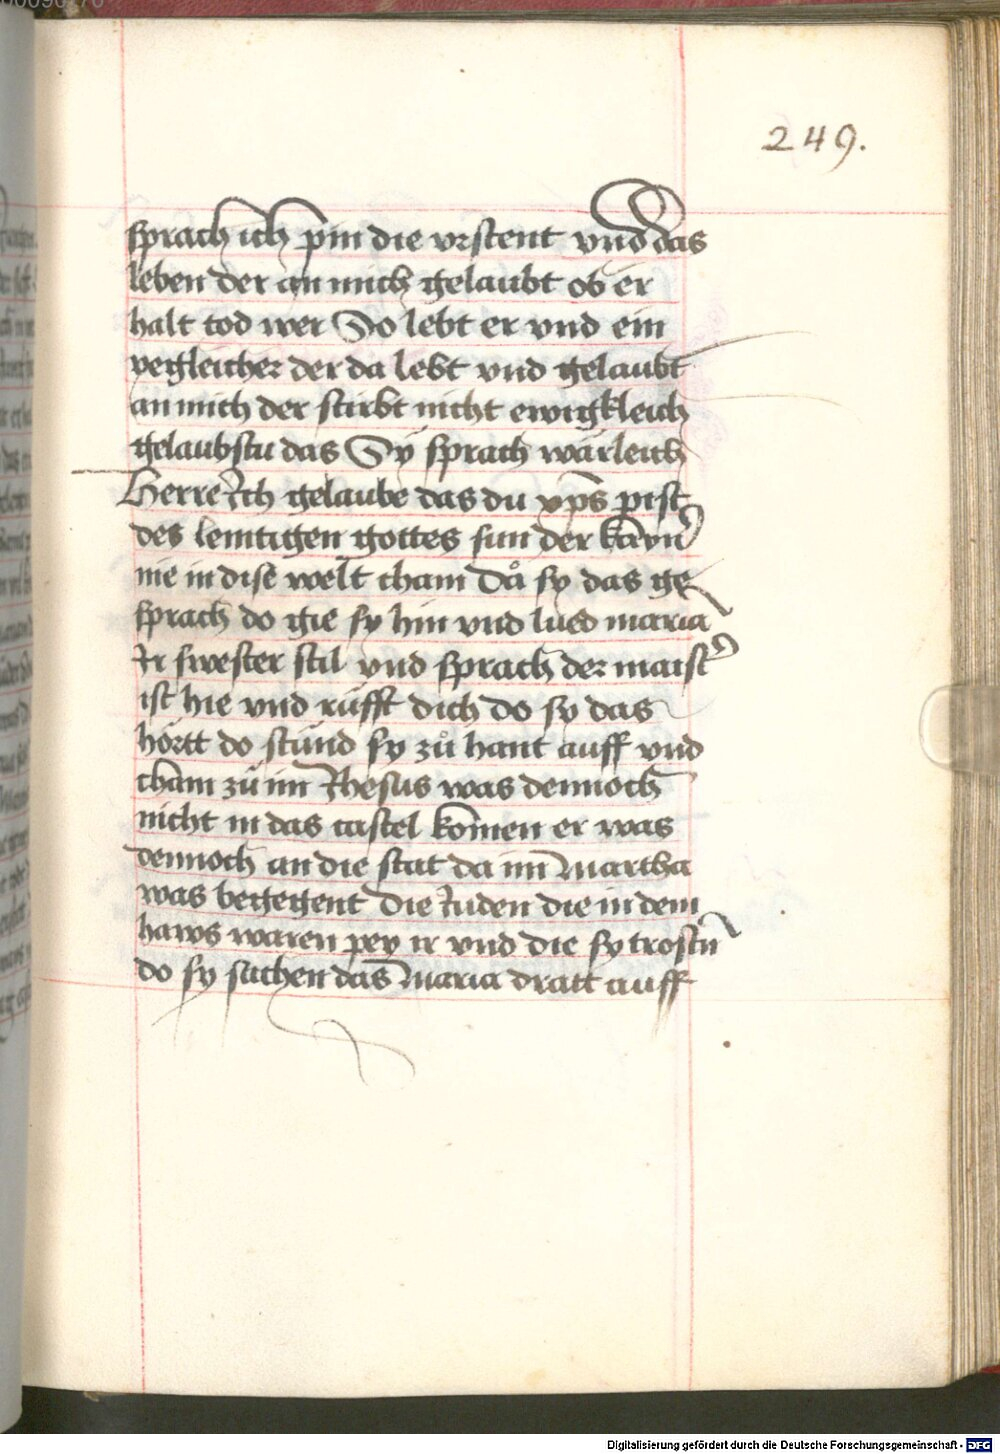 249.
sprach ich pin die vrstent vnd das
leben der an mich gelaubt ob er
halt tod wer So lebt er vnd ein
yegleicher der da lebt vnd gelaubt
an mich der stirbt nicht ewigkleich
gelaubstu das Sy sprach wärleich
Herre Ich gelaube das du xp̄s pist
des lemtigen gottes sun der
nie in dise welt cham Då sy das ge
sprach do gie sy hin vnd lued maria
Ir swester stil vnd sprach der maist̉
ist hie vnd rüfft dich do sy das
hörtt do stünd sy zů hant auff vnd
cham zů im Ihesus was dennoch
nicht in das castel kōmen er was
dennoch an die stat da im Martha
was begegent Die Iuden die in dem
haws waren pey ir vnd die sy trostn̄
do sy sachen das Maria dratt auff
Digitalisierung gefördert durch die Deutsche Forschungsgemeinschaft - DFG